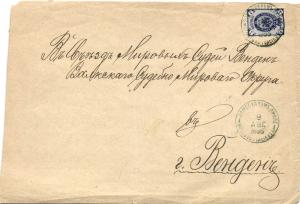 Въ Съѣздъ Мировыхъ Судей Венден
Валкскаго Судебно Мироваго Округа
въ
г. Венденъ
9
АВГ